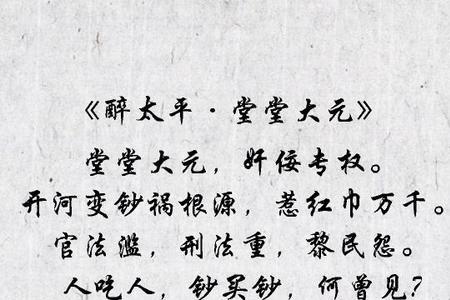 《醉太平·堂堂大元》
堂堂大元，奸佞专权。
开河变钞祸根源，惹红巾万千。
官法滥，刑法重，黎民怨。
人吃人，钞买钞，何曾见？